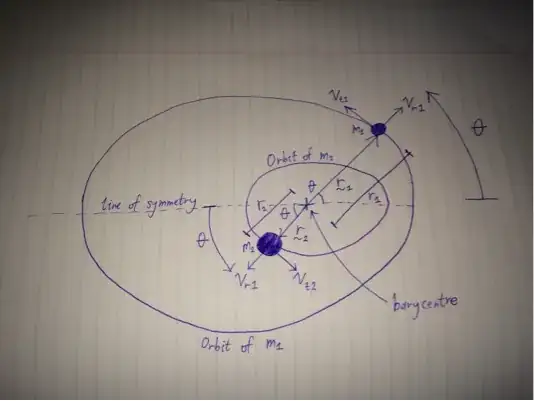 V_t1
V_r1
m_1
θ
Orbit of m_2
line of symmetry
θ
r_1
r_2
θ
r_1
θ
r_2
m_2
V_r2
V_t2
barycentre
Orbit of m_1